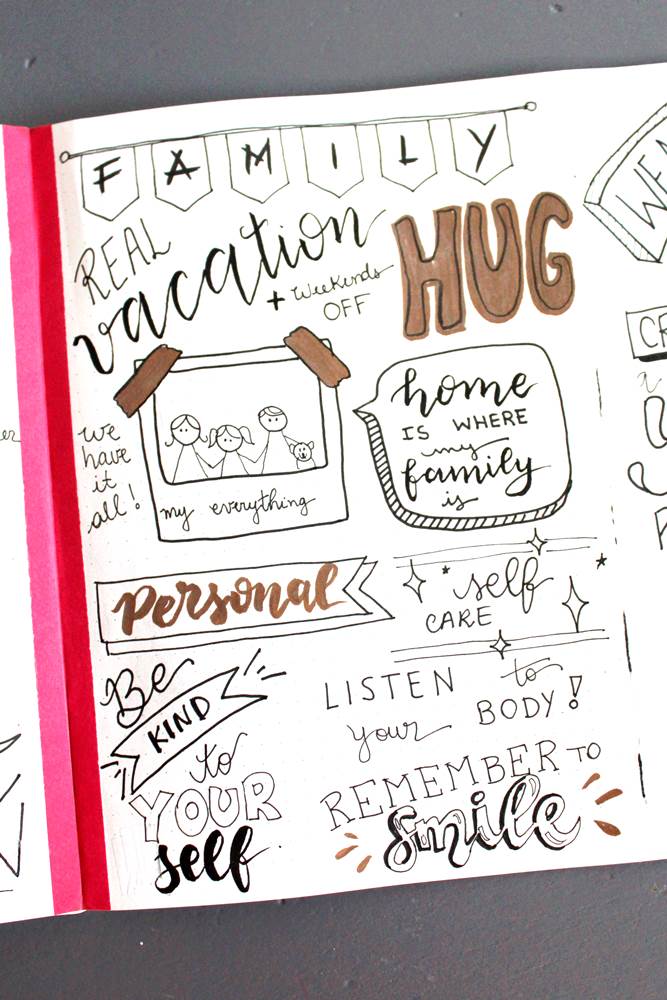 FAMILY
REAL
vacation
+ weekends
OFF
HUG
we
have
it
all!
my everything
home
IS WHERE
my
family
is
Personal
self
CARE
Be
KIND
to
YOUR
self
LISTEN to
your BODY!
REMEMBER TO
smile